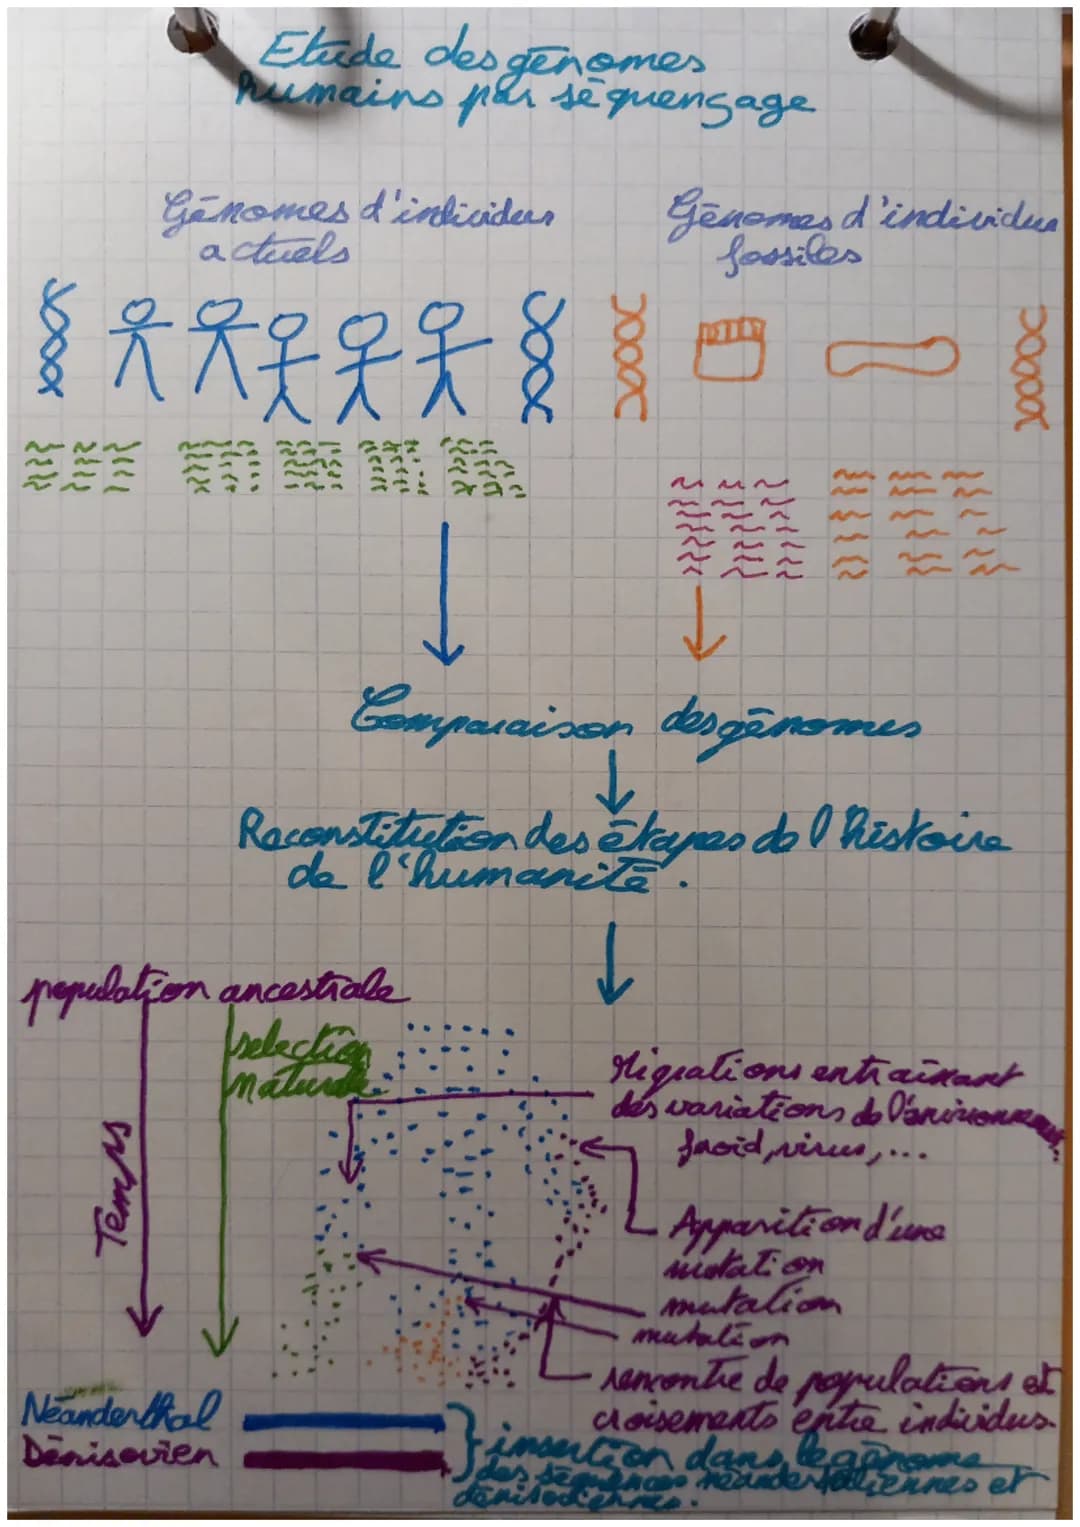 Etude des génomes
humains par séquençage
Génomes d'individus
actuels
Génomes d'individus
fossiles
Comparaison des génomes
Reconstitution des étapes de l'histoire
de l'humanité.
population ancestrale
selection
naturelle
Temps
Migrations entraînant
des variations de l'environnement...
froid, virus, ...
Apparition d'une
mutation
mutation
mutation
rencontre de populations et
croisements entre individus.
Néanderthal
Dénisovien
insertion dans le génome
des séquences néanderthaliennes et
dénisoviennes.